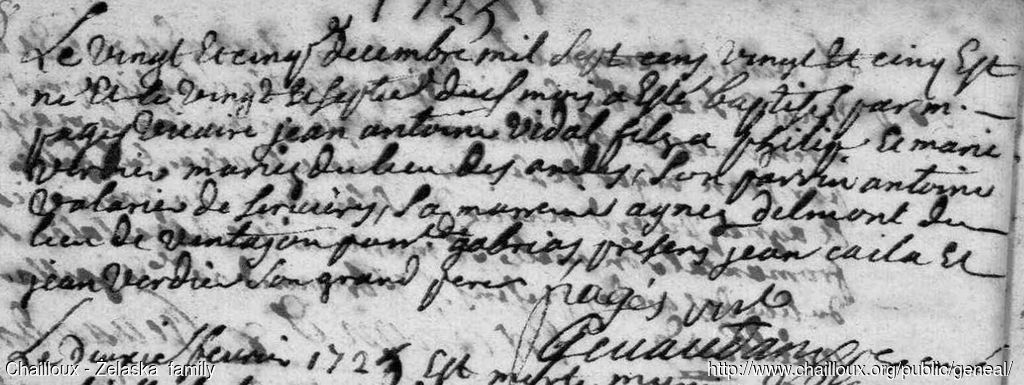 1725
Le vingt et cinq decembre mil sept cens vingt et cinq est
né et le vingt et septie dud mois a esté baptisé par m.
pages vicaire jean antoine vidal fils a philip et marie
verdier mariez du lieu des andes, son parrin antoine
valarie de serviers, sa marrene agnez delmont du
lieu de vantajou parr. gabrias, presens jean caila et
jean verdier son grand pere pagés vic
Le deuxie fevrier 1725 est
Chailloux - Zelaska family
http://www.chailloux.org/public/geneal/